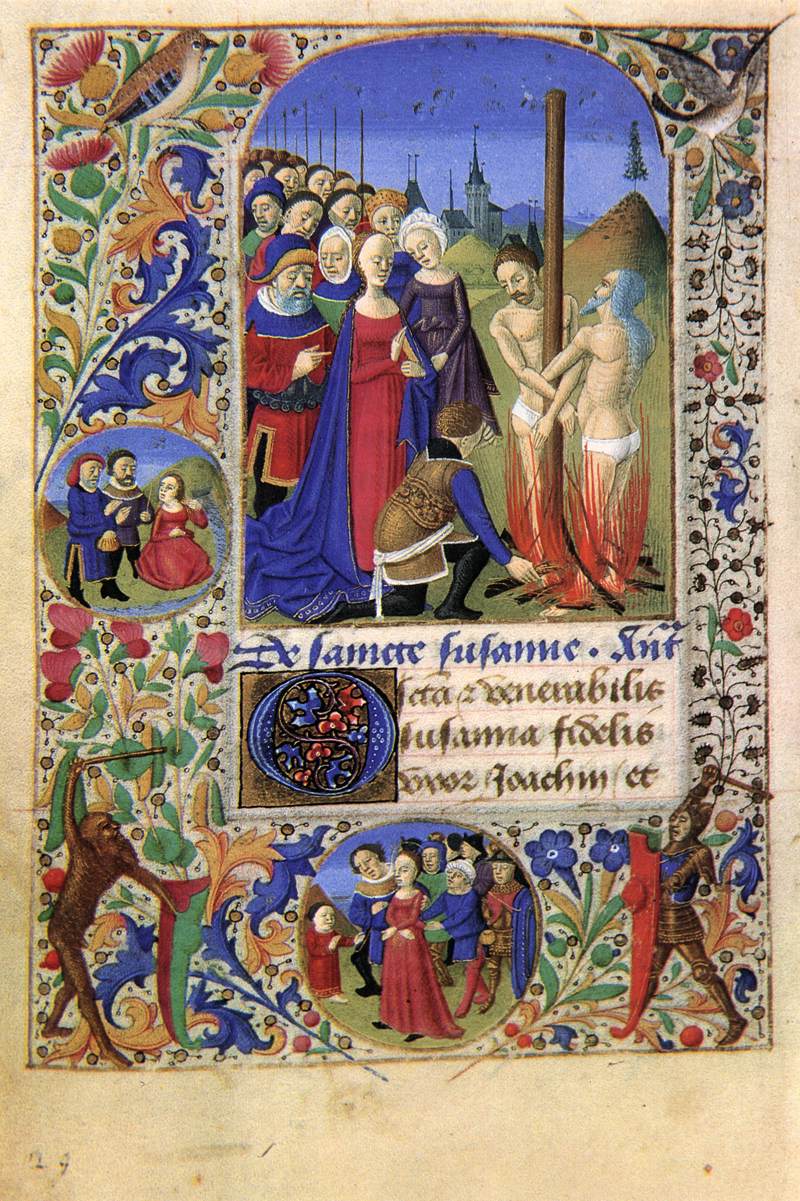 De sancte susanne . Ant̄
Scta ⁊ venerabilis
susanna fidelis
vxor Joachin et